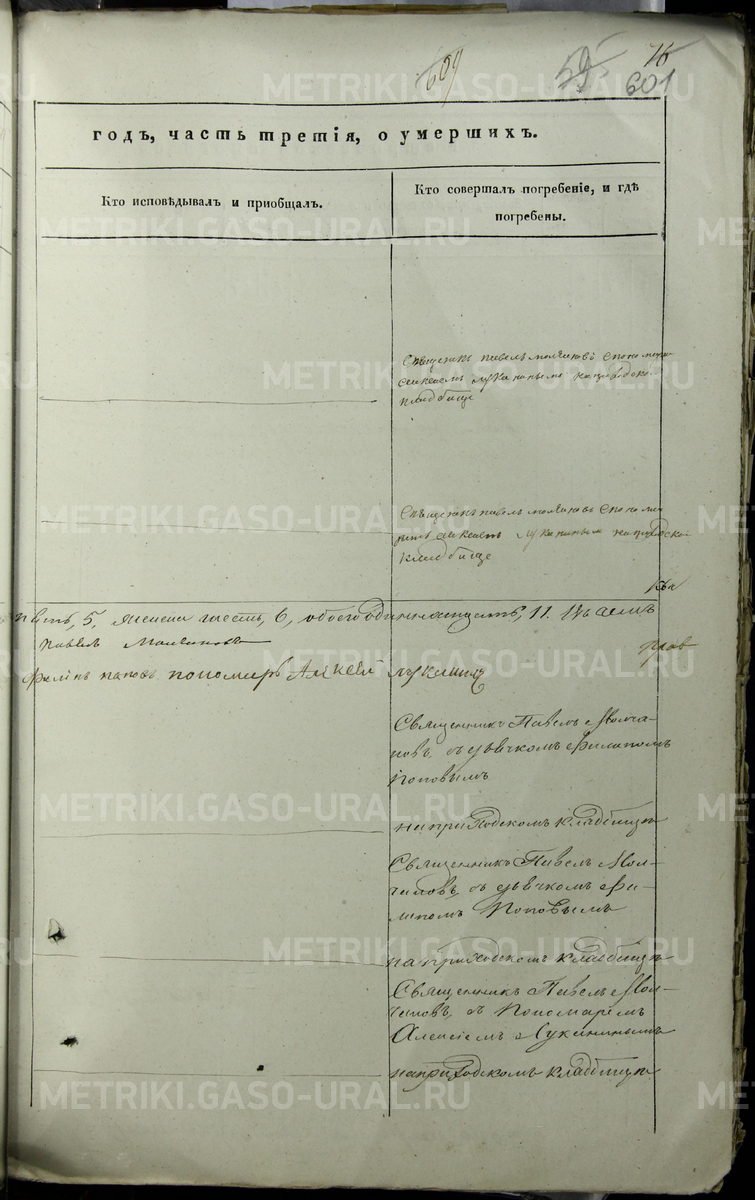 609 59 76
601
годъ, часть третія, о умершихъ.
Кто исповѣдывалъ и пріобщалъ.
Кто совершалъ погребеніе, и гдѣ
погребены.
Священникъ павелъ молчановъ спономаре
алексѣемъ лукинымъ
кладбище
Священникъ павелъ молчановъ спонома
ремъ лукинымъ
кладбище
пять, 5, женска шесть, 6, обоего одиннатцать, 11.
Павелъ Молчановъ
Филипъ поповъ пономарь Алексѣй лукинъ
Священникъ Павелъ Молча-
новъ, съ дьячкомъ Филипомъ
Поповымъ
на приходскомъ кладбищѣ
Священникъ Павелъ Мол-
чановъ, съ дьячкомъ Фи-
липомъ Поповымъ
на приходскомъ кладбищѣ
Священникъ Павелъ Мол-
чановъ, съ Пономаремъ
Алексіемъ Лукинымъ
на приходскомъ кладбищѣ.
METRIKI.GASO-URAL.RU